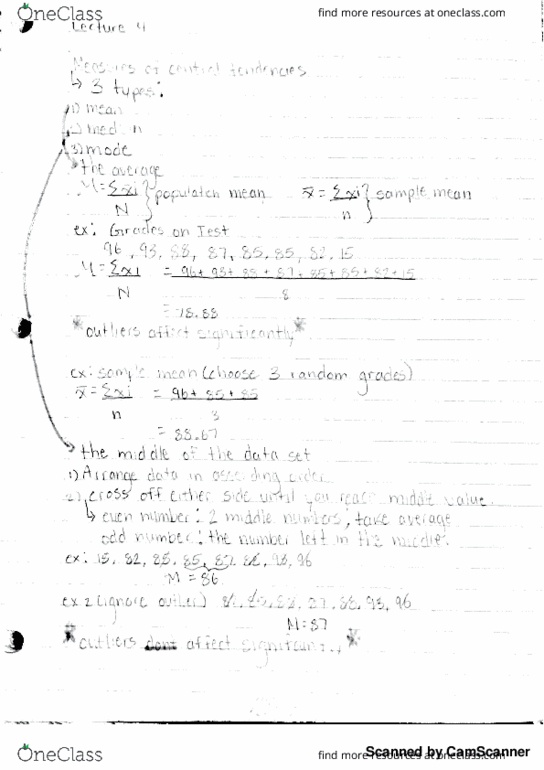 OneClass
find more resources at oneclass.com
Lecture 4
Measures of central tendencies
↳ 3 types:
1) mean
2)
3) mode
the average
M = Σxi } population mean x̄ = Σxi } sample mean
N n
ex: Grades on Test
96, 93, 88, 87, 85, 85, 82, 15
M = Σxi = 96 + 93 + 88 + 87 + 85 + 85 + 82 + 15
N 8
= 78.88
*outliers affect significantly*
ex: sample mean (choose 3 random grades)
x̄ = Σxi = 96 + 85 + 85
n 3
= 88.67
the middle of the data set
1) Arrange data in ascending order
2) cross off either side until you reach middle value.
↳ even number: 2 middle numbers, take average
odd number: the number left in the middle.
ex: 15, 82, 85, 85, 87, 88, 93, 96
M = 86
ex 2 (ignore outlier) 85, 87, 88, 93, 96
M = 87
*outliers dont affect
OneClass
find more resources at oneclass.com
Scanned by CamScanner